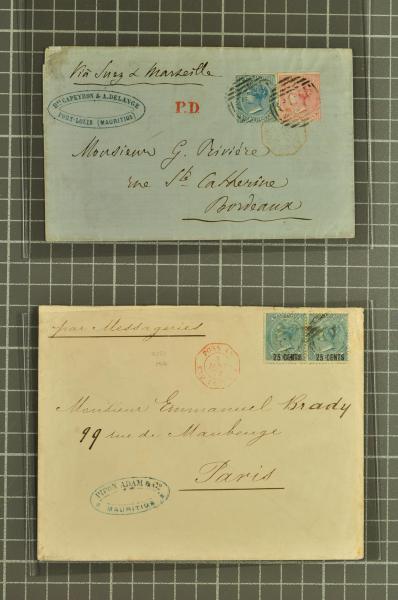 Via Suez & Marseille
Dts CAPEYRON & A. DELANGE
PORT-LOUIS (MAURITIUS)
P.D
Monsieur G. Rivière
rue Ste Catherine
Bordeaux
par Messageries
25 CENTS
25 CENTS
Monsieur Emmanuel Brady
99 rue de Maubeuge
Paris
PIPON ADAM & Co
MAURITIUS